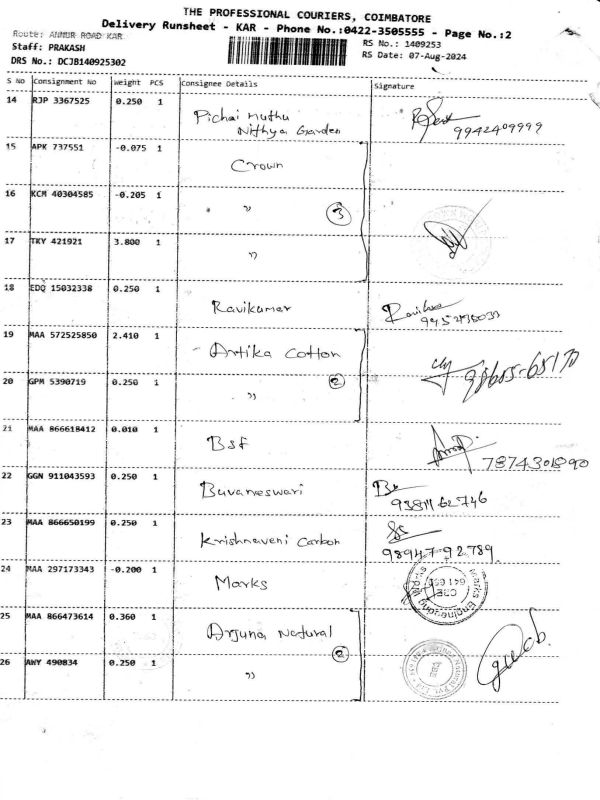 THE PROFESSIONAL COURIERS, COIMBATORE
Delivery Runsheet - KAR - Phone No.:0422-3505555 - Page No.:2
Route: ANNUR ROAD KAR
Staff: PRAKASH
DRS No.: DCJB140925302
RS No.: 1409253
RS Date: 07-Aug-2024
S No Consignment No Weight PCS Consignee Details Signature
14 RJP 3367525 0.250 1 Pichai muthu
Nithya Garden 9942409999
15 APK 737551 -0.075 1 Crown
16 KCM 40304585 -0.205 1 " 3
17 TKY 421921 3.800 1 "
18 EDQ 15032338 0.250 1 Ravikumar
19 MAA 572525850 2.410 1 Artika Cotton
20 GPM 5390719 0.250 1 " 2
21 MAA 866618412 0.010 1 Bsf 7874301890
22 GGN 911043593 0.250 1 Buvaneswari
23 MAA 866650199 0.250 1 Krishnaveni Carbon
9894792789
24 MAA 297173343 -0.200 1 Marks
25 MAA 866473614 0.360 1 Arjuna Natural 2
26 AWY 490834 0.250 1 "